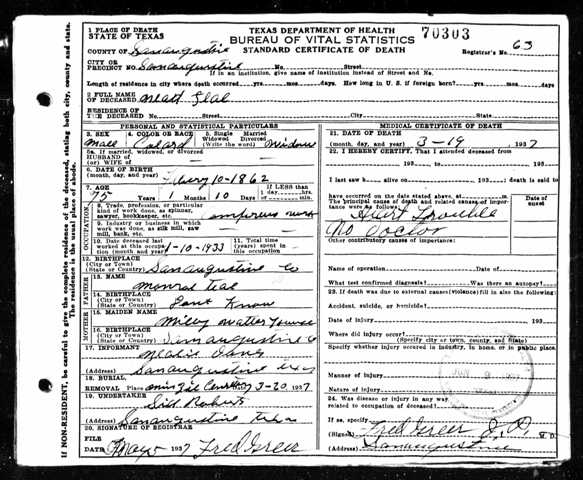 1 PLACE OF DEATH
STATE OF TEXAS
TEXAS DEPARTMENT OF HEALTH
BUREAU OF VITAL STATISTICS
STANDARD CERTIFICATE OF DEATH
70303
COUNTY OF Sanaugustine
Registrar's No. 63
CITY OR
PRECINCT NO. Sanaugustine No. Street
If in an institution, give name of institution instead of Street and No.
Length of residence in city where death occurred yrs mos days. How long in U. S. if foreign born? yrs mos days
2 FULL NAME
OF DECEASED Matt Teal
RESIDENCE OF
THE DECEASED No. Street City State
PERSONAL AND STATISTICAL PARTICULARS
3. SEX 4. COLOR OR RACE 5. Single Married Widowed Divorced (Write the word)
Male Colard Widow
5a If married, widowed, or divorced
HUSBAND OF
(or) WIFE OF
6. DATE OF BIRTH
(month, day, and year) 10-1862
7. AGE Months Days If LESS than
1 day hrs or minutes
75 10
OCCUPATION
8. Trade, profession, or particular
kind of work done, as spinner,
sawyer, bookkeeper, etc.
9. Industry or business in which
work was done, as silk mill, saw
mill, bank, etc.
10. Date deceased last
worked at this occupation
(month and year) 1-10-1933
11. Total time (years) spent in
this occupation
12. BIRTHPLACE
(City or Town)
(State or Country) Sanaugustine Co
FATHER
13. NAME
Monrod Teal
14. BIRTHPLACE
(City or Town)
(State or Country) Dont Know
MOTHER
15. MAIDEN NAME
Milley
16. BIRTHPLACE
(City or Town)
(State or Country) Sanaugustine Co
17. INFORMANT
Davis
(Address) Sanaugustine Tex
18. BURIAL,
REMOVAL Place Date 3-20, 1937
19. UNDERTAKER
Sid Roberts
(Address) Sanaugustine Texas
20. SIGNATURE OF REGISTRAR
FILE
DATE May 1937 Fred Greer
MEDICAL CERTIFICATE OF DEATH
21. DATE OF DEATH
(month, day, and year) 3-19 1937
22. I HEREBY CERTIFY, That I attended deceased from
193 to 193
I last saw h alive on 193 ; death is said to
have occurred on the date stated above, at m.
The principal cause of death and related causes of importance were as follows:
Date of onset
Hurt Trouble
No Doctor
Other contributory causes of importance:
Name of operation Date of
What test confirmed diagnosis? Was there an autopsy?
23. If death was due to external causes (violence) fill in also the following:
Accident, suicide, or homicide?
Date of injury 193
Where did injury occur?
(Specify city or town, county, and state)
Specify whether injury occurred in industry, in home, or in public place.
Manner of injury
Nature of injury
24. Was disease or injury in any way
related to occupation of deceased?
If so, specify
(Signed) Fred Greer J.P. M. D.
(Address) Sanaugustine